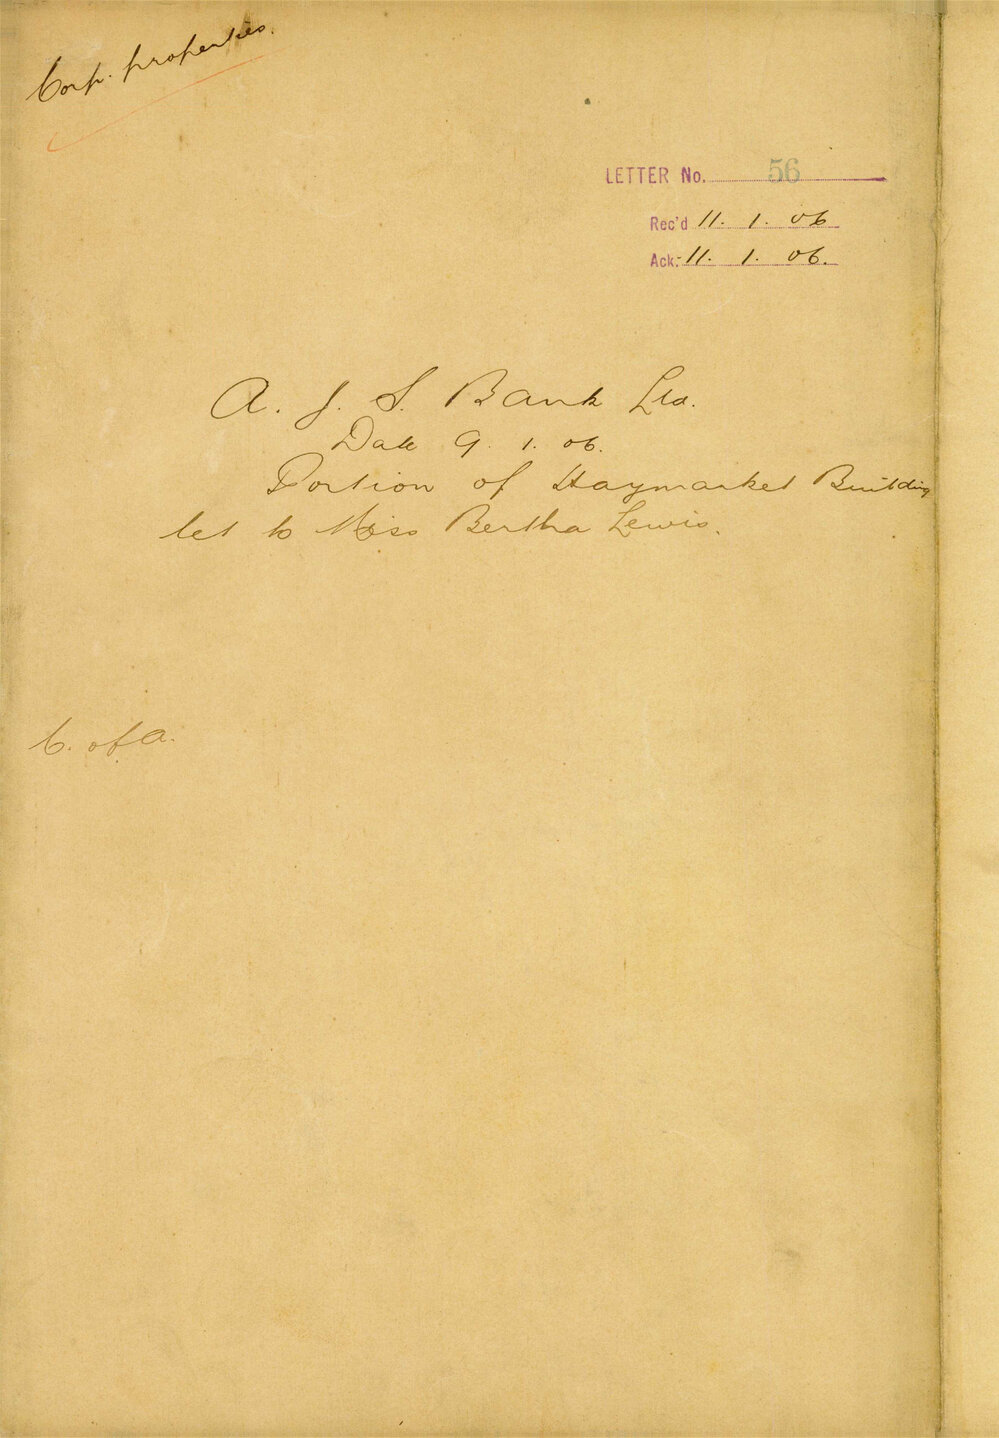 Corp. properties.
LETTER No. 56
Rec'd 11. 1. 06
Ack. 11. 1. 06.
A. J. S. Bank Ltd.
Date 9. 1. 06.
Portion of Haymarket Building
let to Miss Bertha Lewis.
C. of A.